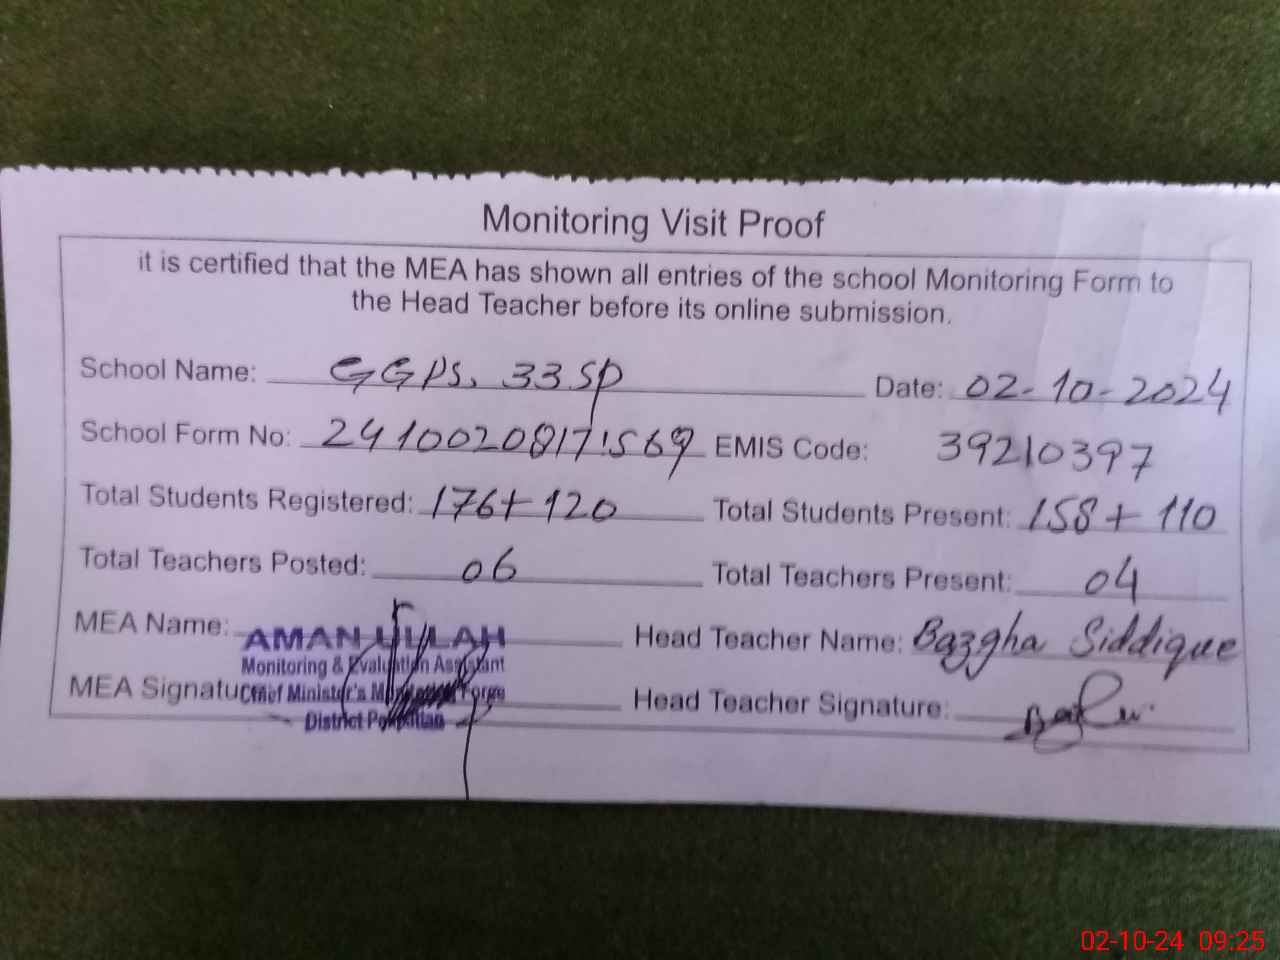 Monitoring Visit Proof
it is certified that the MEA has shown all entries of the school Monitoring Form to
the Head Teacher before its online submission.
School Name: GGPS. 33 SP Date: 02-10-2024
School Form No: 24100208171569 EMIS Code: 39210397
Total Students Registered: 176+120 Total Students Present: 158+110
Total Teachers Posted: 06 Total Teachers Present: 04
MEA Name: AMAN ULLAH Head Teacher Name: Bazgha Siddique
Monitoring & Evaluation Assistant
MEA Signature Chief Minister's Monitoring Force Head Teacher Signature:
District Pakpattan
02-10-24 09:25